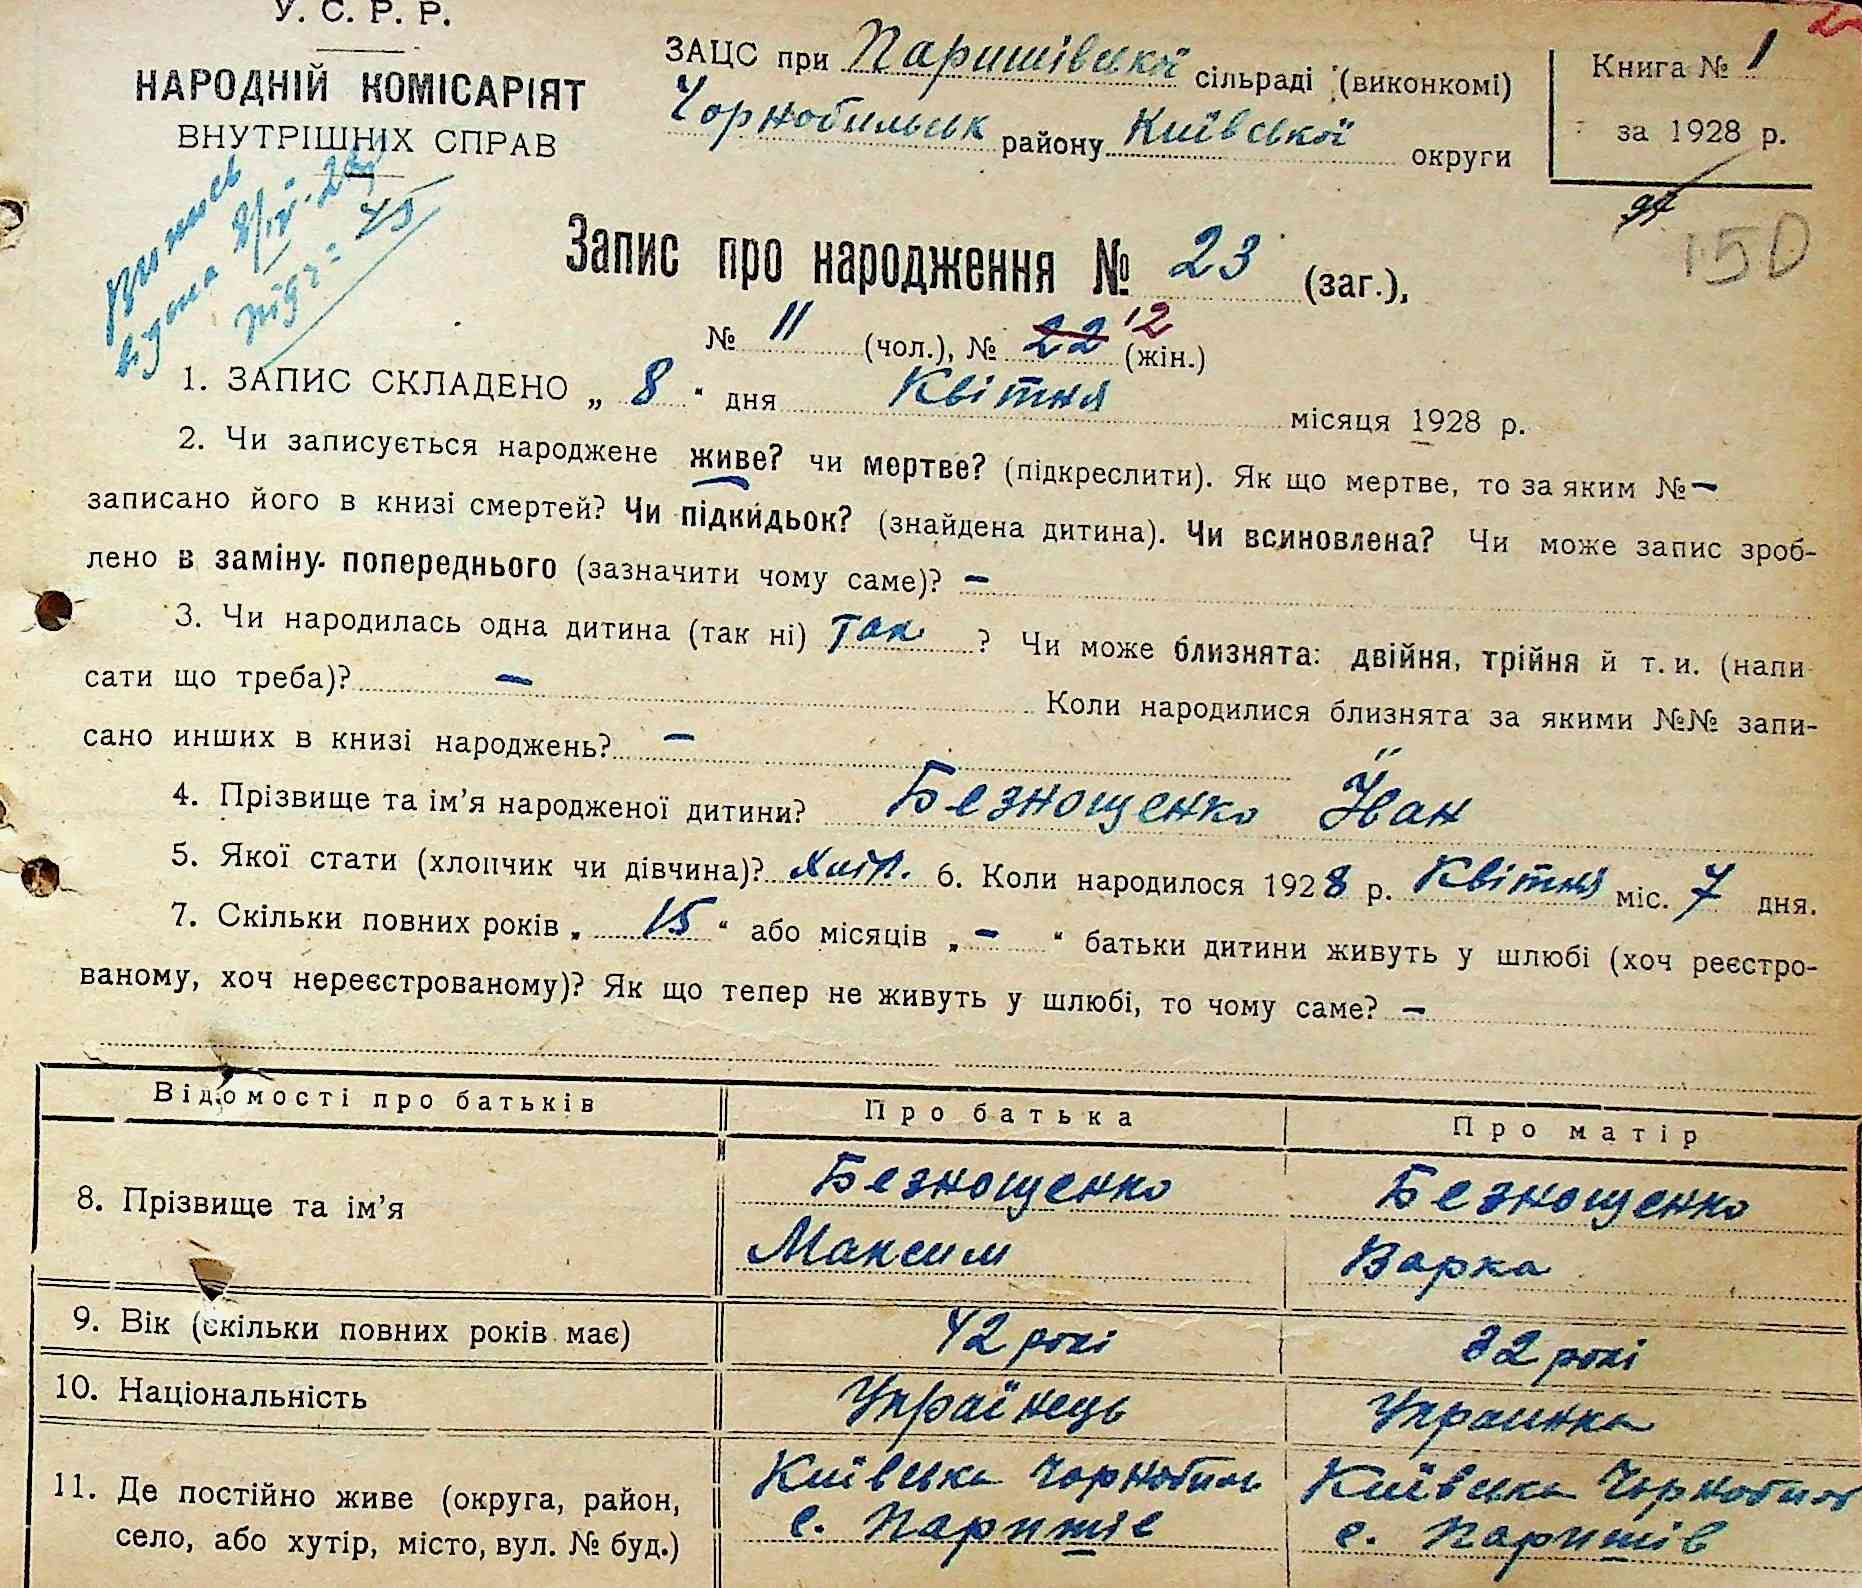 У. С. Р. Р.
НАРОДНІЙ КОМІСАРІЯТ
ВНУТРІШНІХ СПРАВ
ЗАЦС при Паришівській сільраді (виконкомі)
Чорнобильськ району Київської округи
Книга № 1
за 1928 р.
150
Запис про народження № 23 (заг.),
№ 11 (чол.), № 22 12 (жін.)
1. ЗАПИС СКЛАДЕНО „ 8 " дня Квітня місяця 1928 р.
2. Чи записується народжене живе? чи мертве? (підкреслити). Як що мертве, то за яким № –
записано його в книзі смертей? Чи підкидьок? (знайдена дитина). Чи всиновлена? Чи може запис зроб-
лено в заміну попереднього (зазначити чому саме)? –
3. Чи народилась одна дитина (так ні) так ? Чи може близнята: двійня, трійня й т. и. (напи
сати що треба)? – Коли народилися близнята за якими №№ запи-
сано инших в книзі народжень? –
4. Прізвище та ім'я народженої дитини? Безнощенко
5. Якої стати (хлопчик чи дівчина)? 6. Коли народилося 1928 р. Квітня міс. 7 дня.
7. Скільки повних років „ 15 " або місяців „ – " батьки дитини живуть у шлюбі (хоч реєстро-
ваному, хоч нереєстрованому)? Як що тепер не живуть у шлюбі, то чому саме? –
Відомості про батьків Про батька Про матір
8. Прізвище та ім'я Безнощенко Безнощенко
Максим Варка
9. Вік (скільки повних років має) 42 рокі 32 рокі
10. Національність Українець Украинка
11. Де постійно живе (округа, район, Київська Чорнобиль Київська Чорнобиль
село, або хутір, місто, вул. № буд.) с. Паришів с. Паришів